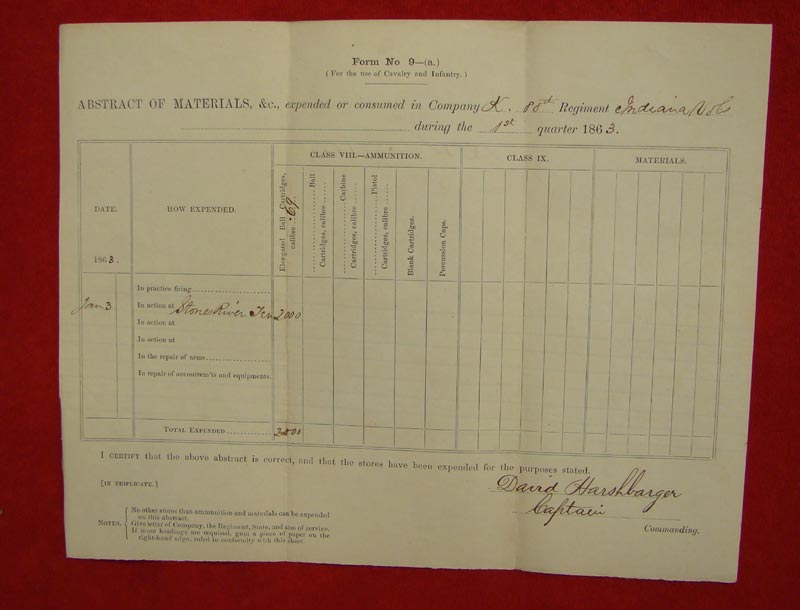 Form No 9—(a.)
(For the use of Cavalry and Infantry.)
ABSTRACT OF MATERIALS, &c., expended or consumed in Company K. 88th Regiment Indiana Vols
during the 1st quarter 1863.
DATE.
1863.
HOW EXPENDED.
CLASS VIII.—AMMUNITION.
CLASS IX.
MATERIALS.
Elongated Ball Cartridges, calibre .69.
Ball Cartridges, calibre
Carbine Cartridges, calibre
Pistol Cartridges, calibre
Blank Cartridges.
Percussion Caps.
In practice firing
Jan 3 In action at Stones River Ten 2000
In action at
In action at
In the repair of arms
In repair of accoutrem'ts and equipments.
TOTAL EXPENDED 2000
I CERTIFY that the above abstract is correct, and that the stores have been expended for the purposes stated.
[IN TRIPLICATE.]
David Harshbarger
Captain
Commanding.
NOTES.
No other stores than ammunition and materials can be expended
on this abstract.
Give letter of Company, the Regiment, State, and arm of service.
If more headings are required, gum a piece of paper on the
right-hand edge, ruled in conformity with this sheet.